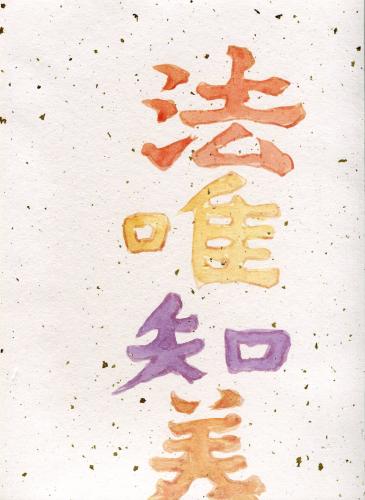 法
唯
知
美